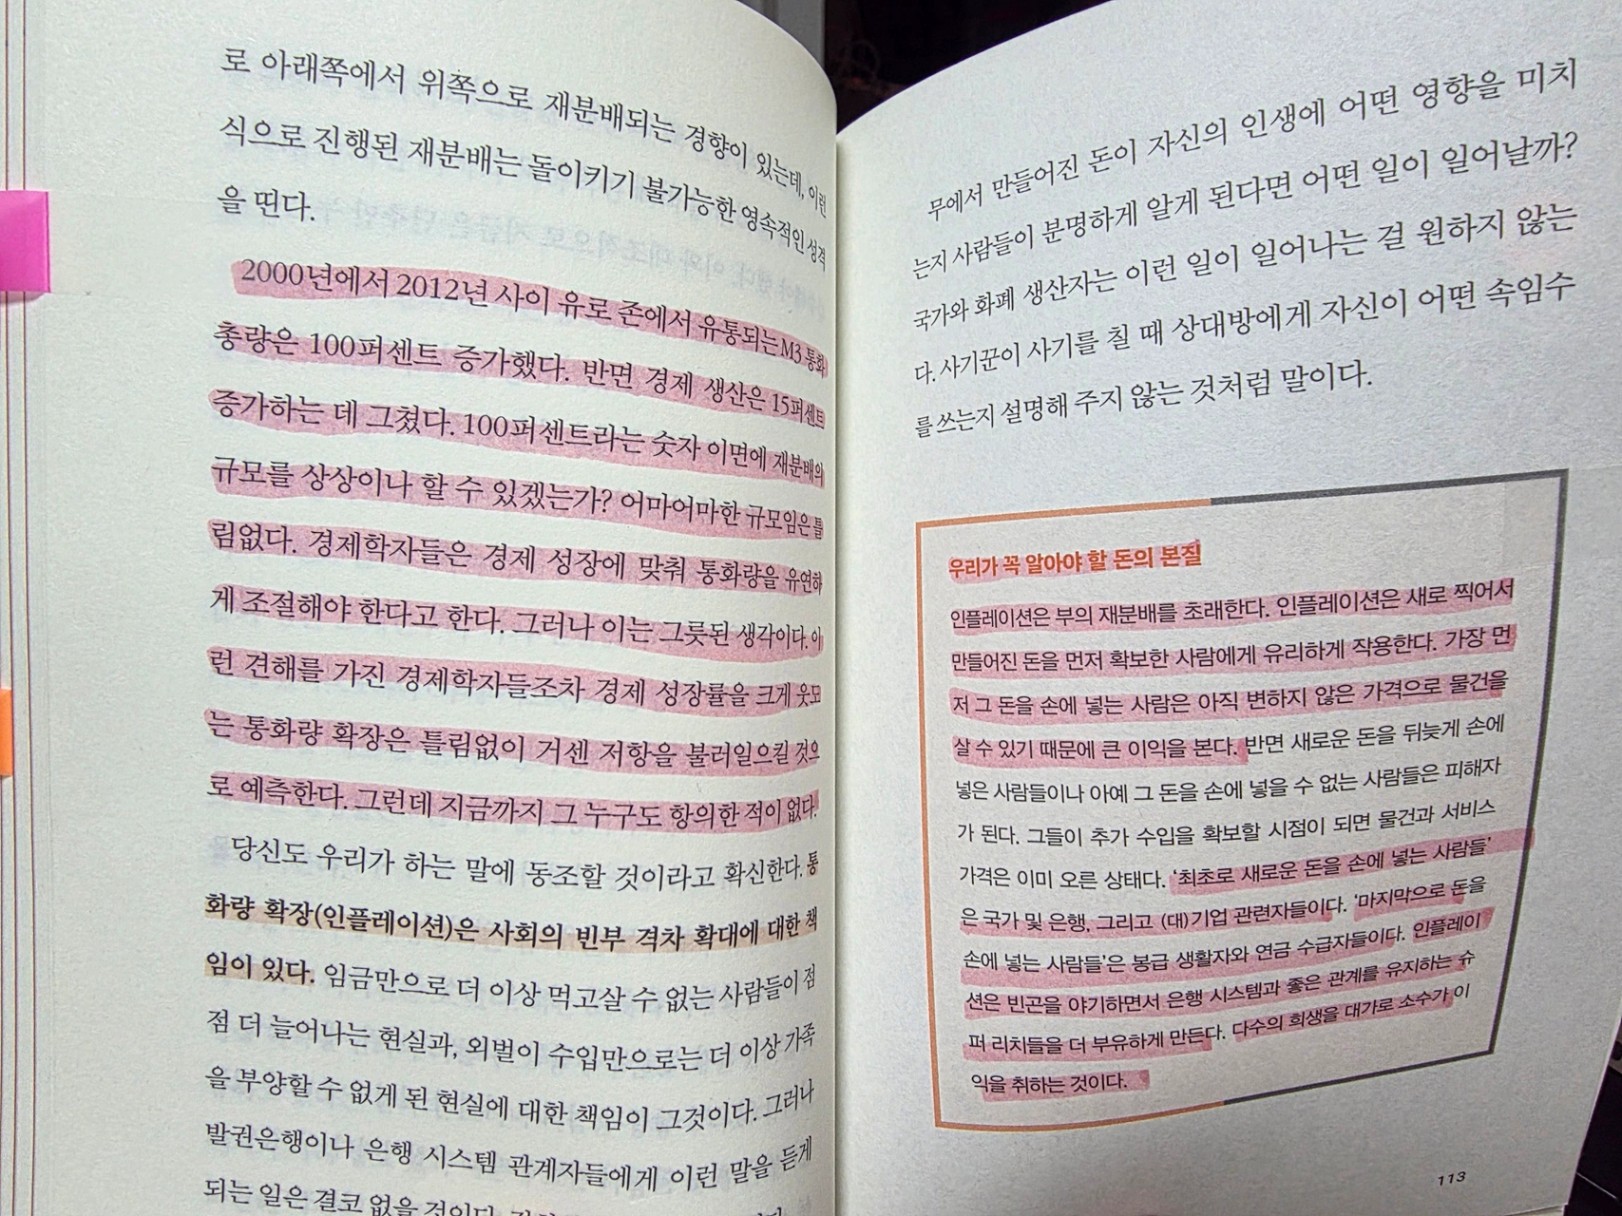 로 아래쪽에서 위쪽으로 재분배되는 경향이 있는데, 이런
식으로 진행된 재분배는 돌이키기 불가능한 영속적인 성격
을 띤다.
2000년에서 2012년 사이 유로 존에서 유통되는 M3 통화
총량은 100퍼센트 증가했다. 반면 경제 생산은 15퍼센트
증가하는 데 그쳤다. 100퍼센트라는 숫자 이면에 재분배의
규모를 상상이나 할 수 있겠는가? 어마어마한 규모임은 틀
림없다. 경제학자들은 경제 성장에 맞춰 통화량을 유연하
게 조절해야 한다고 한다. 그러나 이는 그릇된 생각이다. 이
런 견해를 가진 경제학자들조차 경제 성장률을 크게 웃도
는 통화량 확장은 틀림없이 거센 저항을 불러일으킬 것으
로 예측한다. 그런데 지금까지 그 누구도 항의한 적이 없다.
당신도 우리가 하는 말에 동조할 것이라고 확신한다. 통
화량 확장(인플레이션)은 사회의 빈부 격차 확대에 대한 책
임이 있다. 임금만으로 더 이상 먹고살 수 없는 사람들이 점
점 더 늘어나는 현실과, 외벌이 수입만으로는 더 이상 가족
을 부양할 수 없게 된 현실에 대한 책임이 그것이다. 그러나
발권은행이나 은행 시스템 관계자들에게 이런 말을 듣게
되는 일은 결코 없을 것이다.
무에서 만들어진 돈이 자신의 인생에 어떤 영향을 미치
는지 사람들이 분명하게 알게 된다면 어떤 일이 일어날까?
국가와 화폐 생산자는 이런 일이 일어나는 걸 원하지 않는
다. 사기꾼이 사기를 칠 때 상대방에게 자신이 어떤 속임수
를 쓰는지 설명해 주지 않는 것처럼 말이다.
우리가 꼭 알아야 할 돈의 본질
인플레이션은 부의 재분배를 초래한다. 인플레이션은 새로 찍어서
만들어진 돈을 먼저 확보한 사람에게 유리하게 작용한다. 가장 먼
저 그 돈을 손에 넣는 사람은 아직 변하지 않은 가격으로 물건을
살 수 있기 때문에 큰 이익을 본다. 반면 새로운 돈을 뒤늦게 손에
넣은 사람들이나 아예 그 돈을 손에 넣을 수 없는 사람들은 피해자
가 된다. 그들이 추가 수입을 확보할 시점이 되면 물건과 서비스
가격은 이미 오른 상태다. '최초로 새로운 돈을 손에 넣는 사람들'
은 국가 및 은행, 그리고 (대)기업 관련자들이다. '마지막으로 돈을
손에 넣는 사람들'은 봉급 생활자와 연금 수급자들이다. 인플레이
션은 빈곤을 야기하면서 은행 시스템과 좋은 관계를 유지하는 슈
퍼 리치들을 더 부유하게 만든다. 다수의 희생을 대가로 소수가 이
익을 취하는 것이다.
113